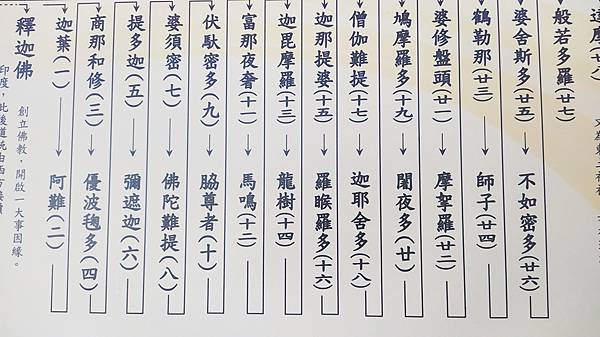 釋迦佛
創立佛教,開啟一大事因緣。
迦葉(一) → 阿難(二)
商那和修(三) → 優波毱多(四)
提多迦(五) → 彌遮迦(六)
婆須密(七) → 佛陀難提(八)
伏馱密多(九) → 脇尊者(十)
富那夜奢(十一) → 馬鳴(十二)
迦毘摩羅(十三) → 龍樹(十四)
迦那提婆(十五) → 羅睺羅多(十六)
僧伽難提(十七) → 迦耶舍多(十八)
鳩摩羅多(十九) → 闍夜多(廿)
婆修盤頭(廿一) → 摩拏羅(廿二)
鶴勒那(廿三) → 師子(廿四)
婆舍斯多(廿五) → 不如密多(廿六)
般若多羅(廿七)